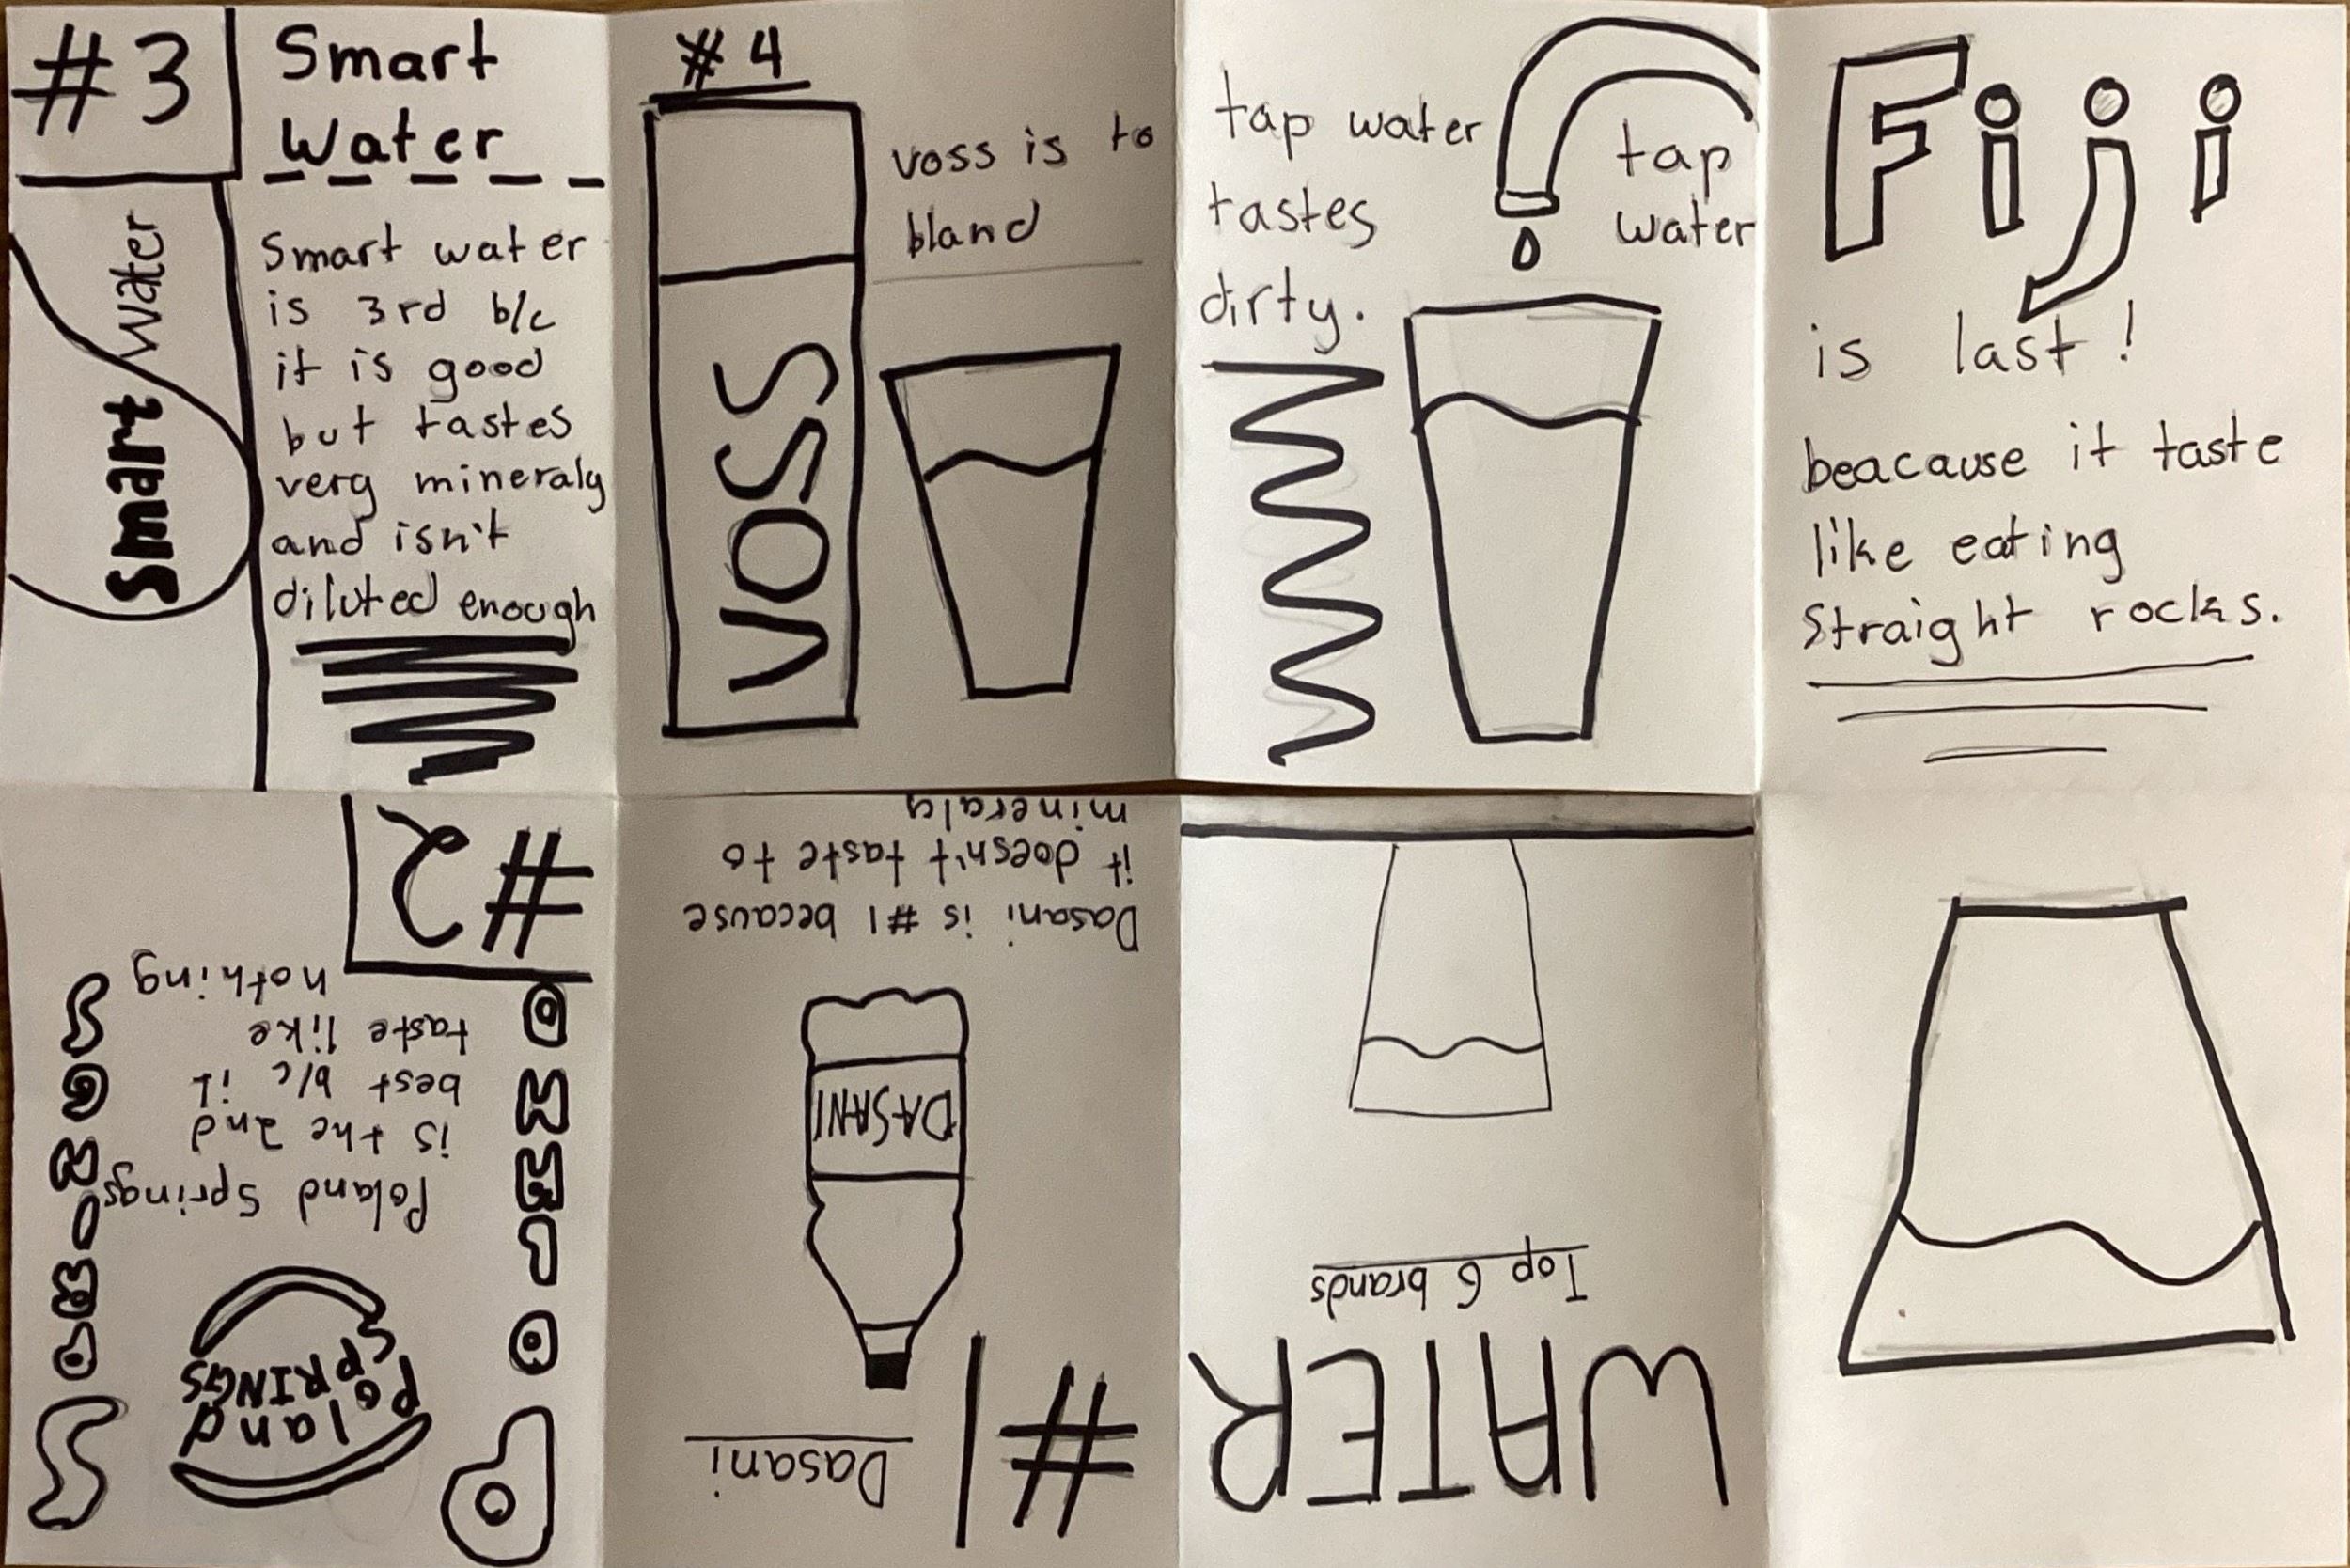 #3
Smart
Water
Smart water
is 3rd b/c
it is good
but tastes
verg mineraly
and isn't
diluted enough
Smart water
#4
voss is to
bland
VOSS
tap water
tastes
dirty.
tap
water
Fiji
is last!
beacause it taste
like eating
Straight rocks.
WATER
Top 6 brands
#1
Dasani
DASANI
Dasani is #1 because
it doesn't taste to
mineraly
#2
Poland
Springs
Poland
SPRINGS
Poland Springs
is the 2nd
best b/c it
taste like
nothing